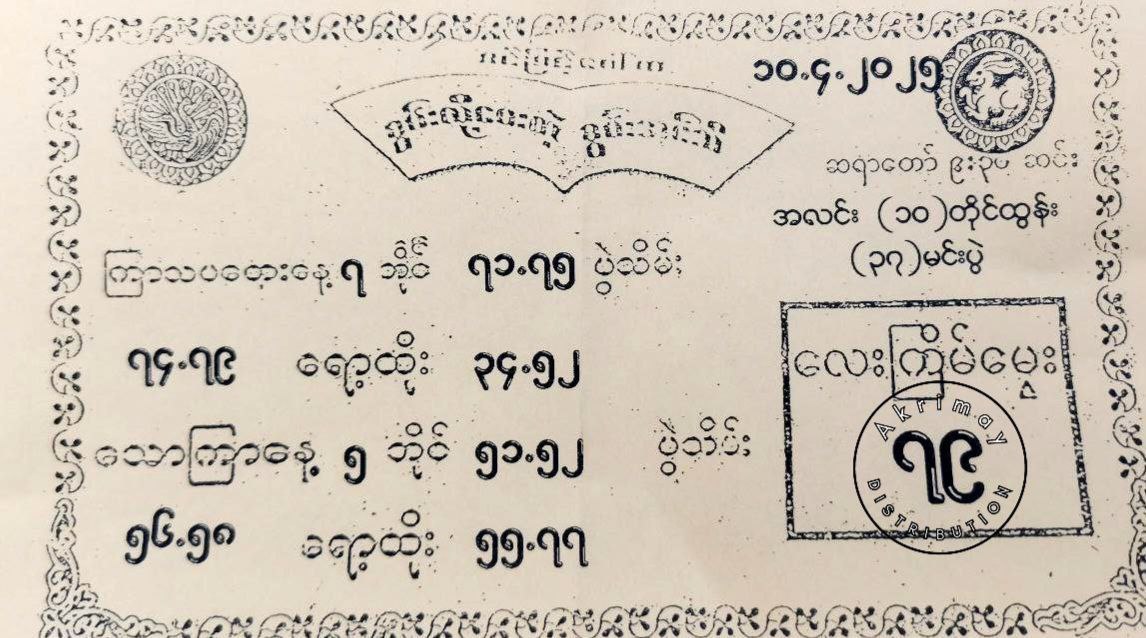 ၁၀.၄.၂၀၂၅
ဆရာတော် ဦး
အလင်း (၁၀)တိုင်ထွန်း
(၃၇)မင်းပွဲ
ကြာသပတေးနေ့ ၇ ဘိုင် ၇၁.၇၅ ပွဲသိမ်း
၇၄.၇၉ ရော့ထိုး ၃၄.၅၂
သောကြာနေ့ ၅ ဘိုင် ၅၁.၅၂ ပွဲသိမ်း
၅၆.၅၈ ရော့ထိုး ၅၅.၇၇
လေးကြိမ်မွေး
၇၉
Akrimay
DISTRIBUTION